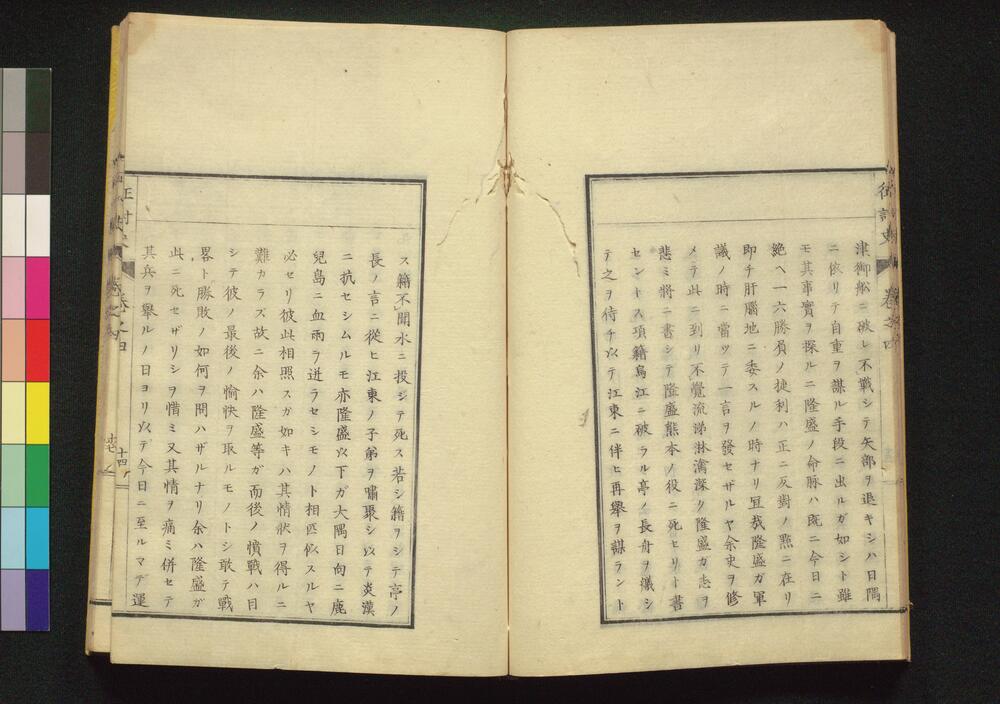 津御船ニ破レ不戰シテ矢部ヲ退キシハ日隅
ニ依リテ自重ヲ謀ル手段ニ出ルガ如シト雖
モ其事實ヲ探ルニ隆盛ノ命脉ハ既ニ今日ニ
絶ヘ一六勝負ノ捷利ハ正ニ反對ノ㸃ニ在リ
即チ肝腦地ニ委スルノ時ナリ宜哉隆盛ガ軍
議ノ時ニ當ツテ一言ヲ發セザルヤ余史ヲ修
メテ此ニ到リ不覺流涕淋漓深ク隆盛ガ志ヲ
悲ミ將ニ書シテ隆盛熊本ノ役ニ死セリト書
セントス項籍烏江ニ破ラル亭ノ長舟ヲ艤シ
テ之ヲ待チ以テ江東ニ伴ヒ再擧ヲ謀ラント
ス籍不聞水ニ投シテ死ス若シ籍ヲシテ亭ノ
長ノ言ニ從ヒ江東ノ子弟ヲ嘯聚シ以テ炎漢
ニ抗セシムルモ亦隆盛以下ガ大隅日向ニ鹿
兒島ニ血雨ヲ迸ラセシモノト相匹似スルヤ
必セリ彼此相照スガ如キハ其情状ヲ得ルニ
難カラズ故ニ余ハ隆盛等ガ而後ノ憤戰ハ目
シテ彼ノ最後ノ愉快ヲ取ルモノトシ敢テ戰
畧ト勝敗ノ如何ヲ問ハザルナリ余ハ隆盛ガ
此ニ死セザリシヲ惜ミ又其情ヲ痛ミ併セテ
其兵ヲ擧ルノ日ヨリ以テ今日ニ至ルマデ運
十四